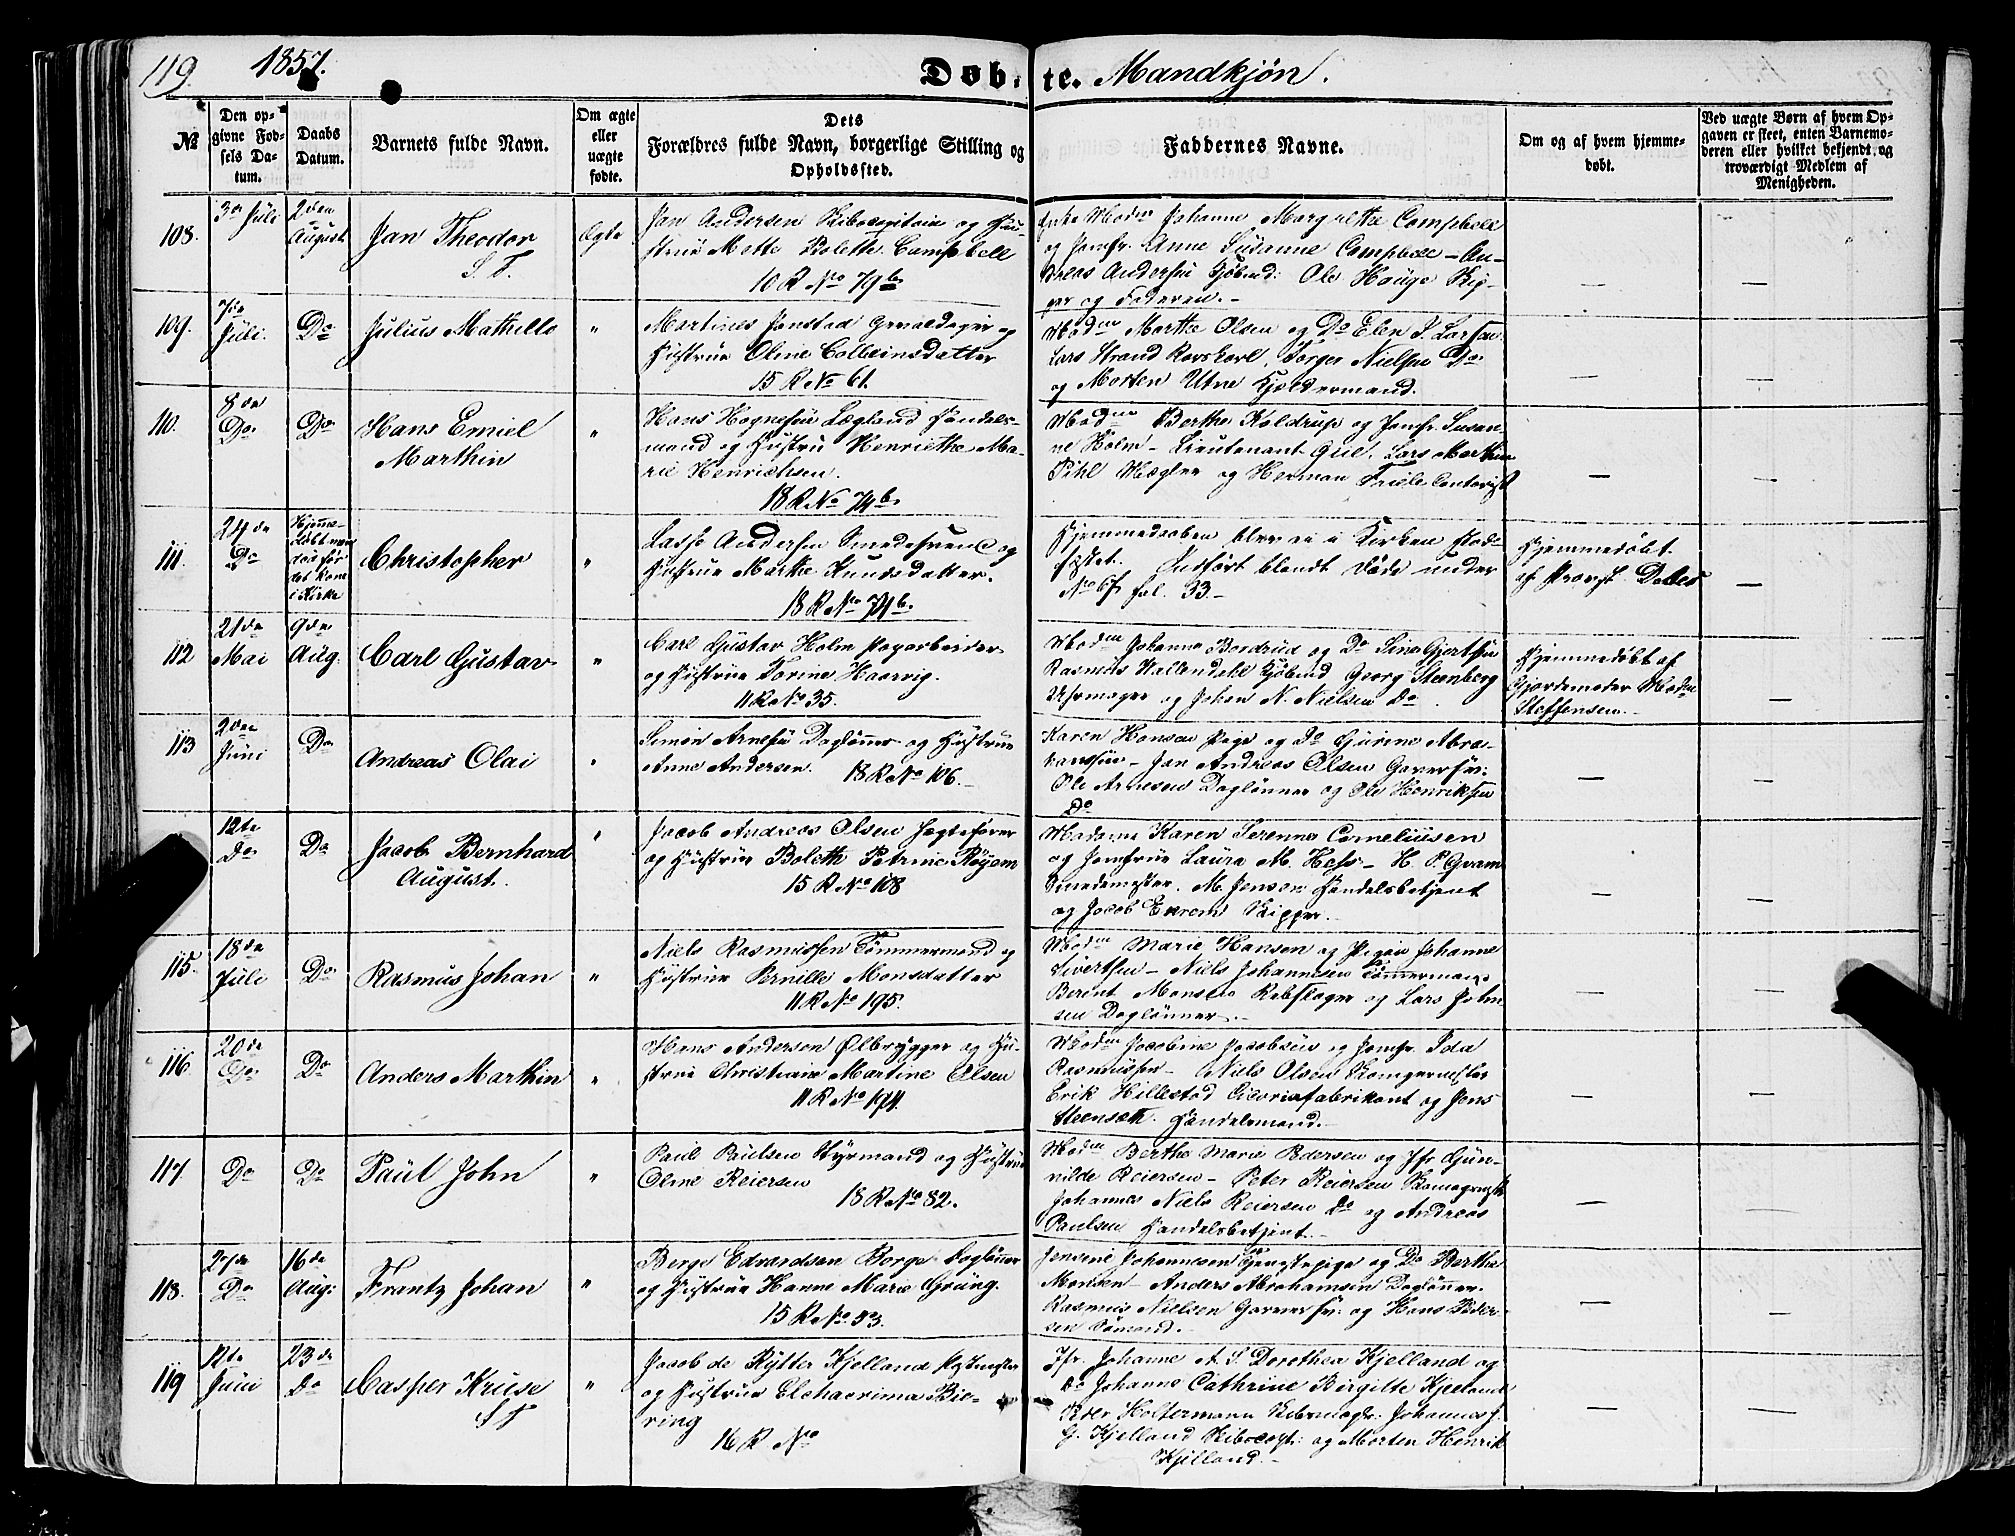 119. 1857. Døbte. Mandkjøn.
No
Den opgivne Fødsels Datum.
Daabs Datum.
Barnets fulde Navn.
Om ægte eller uægte fødte.
Dets Forældres fulde Navn, borgerlige Stilling og Opholdssted.
Faddernes Navne.
Om og af hvem hjemmedøbt.
Ved uægte Børn af hvem Opgaven er skeet, enten Barnemoderen eller hvilket bekjendt og troværdigt Medlem af Menigheden.
108. 3die Juli 2den August Jan Theodor S. T. Ægte
Jan Andersen Skibscapitain og Hu-
strue Mette Bolette Campbell
10 R No 79b
Enke Madm Johanne Margrethe Campbell
og Jomfr. Anne Susanne Campbell – An-
dreas Andersen Kjøbmd: Ole Houge Skip-
per og Faderen. –
— —
109. 7de Juli. Do Julius Mathillo "
Martines Jonstad Graadøger og
Hustrue Oline Colbeinsdatter
15 R No 61.
Madm Marthe Olsen og Do Elen J. Larsen
Lars Strand Rorskarl, Torger Nielsen Do
og Morten Utne Kjeldermand.
— —
110. 8de Do Do Hans Emiel Marthin "
Hans Hognesen Lægland Handels-
mand og Hustru Henriethe Ma-
rie Henrichsen.
18 R No 74b.
Madm Berthe Koldrup og Jomfr. Susan-
ne Holm – Lieutenant Grie, Lars Marthin
Pihl Mægler og Herman Friele Contorist
— —
111. 24de Do Hjemme-
døbt men
død før
det kom
i Kirke
Christopher "
Lasse Andersen Smedesvend og
Hustrue Marthe Knudsdatter.
18 R No 71b.
Hjemmedaaben blev ei i Kirken stad-
fæstet. Indført blandt Døde under
No 67 fol. 33. –
Hjemmedøbt
af Provst Dahls —
112 21de Mai 9de Aug: Carl Gustav "
Carl Gustav Holm Fagarbeider
og Hustrue Torine Haarvig.
11 R No 35.
Madm Johanne Bordrud og Do Sine Gjertsen
Rasmus Wallendahl Kjøbmd Georg Steenberg
Uhrmager og Johan N. Nielsen Do
Hjemmedøbt af
Gjordemoder Madm
Steffensen. — —
113 2den Juni Do Andreas Olai "
Simon Arnesen Daglønner og Hustrue
Anne Andersen. 18 R No 106. –
Karen Hansen Pige og Do Gurine Abra-
hamsen – Jan Andreas Olsen Garversv:
Ole Arnesen Daglønner og Ole Henriksen
Do
— —
12te Do Do Jacob Bernhard August. "
Jacob Andreas Olsen Jægtefører
og Hustrue Boleth Petrine Røyem
15 R No 108
Madame Karen Serenne Corneliusen
og Jomfrue Laura M. Hess – H. P. Gram
Smedemester. M. Jensen Handelsbetjent
og Jacob Exrem Skipper. –
— —
115. 18de Juli Do Rasmus Johan "
Niels Rasmussen Tømmermand og
Hustrue Pernille Monsdatter
11 R No 195.
Madm Marie Hansen og Pigen Johanne
Sivertsen – Niels Johannesen Tømmermand
Berent Monsen Rebslager og Lars John-
sen Daglønner. –
— —
116. 20de Do Do Anders Marthin "
Hans Anderson Ølbrygger og Hu-
strue Christiane Martine Olsen
11 R No 194.
Madm Jacobine Jacobsen og Jomfr. Ida
Rasmussen – Niels Olsen Skomagermester
Erik Hillestad Cicoriefabrikant og Jens
Steensæth. Handelsmand. –
— —
117. Do Do Paul John "
Paul Paulsen Styrmand og Hustrue
Oline Reiersen
18 R No 82.
Madm Berthe Marie Pedersen og Jfr Gun-
nilde Reiersen – Peter Reiersen Skomagermester
Johannes Niels Reiersen Do og Andreas
Paulsen Handelsbetjent. –
— —
118. 27de Do 16de Aug: Frantz Johan "
Børge Edvardsen Borge Daglønner
og Hustrue Hanne Marie Grung.
15 R No 53.
Jensine Johannesen Tjenestepige og Do Berthe
Monsen – Anders Abrahamsen Daglønner.
Rasmus Nielsen Garversv: og Hans Peder-
sen Sømand. –
— —
119 12te Juni 23de Do Casper Kruse S T "
Jacob de Rytter Kjelland Postmester
og Hustrue Elchaerima Bie-
ring
16 R No
Jfr. Johanne A. S. Dorothea Kjelland og
Do Johanne Cathrine Birgitte Kjelland
Peder Holtermann Skibsmægl: Johannes J.
G. Kjelland Skibscapt: og Morten Henrik
Kjelland. –
— —